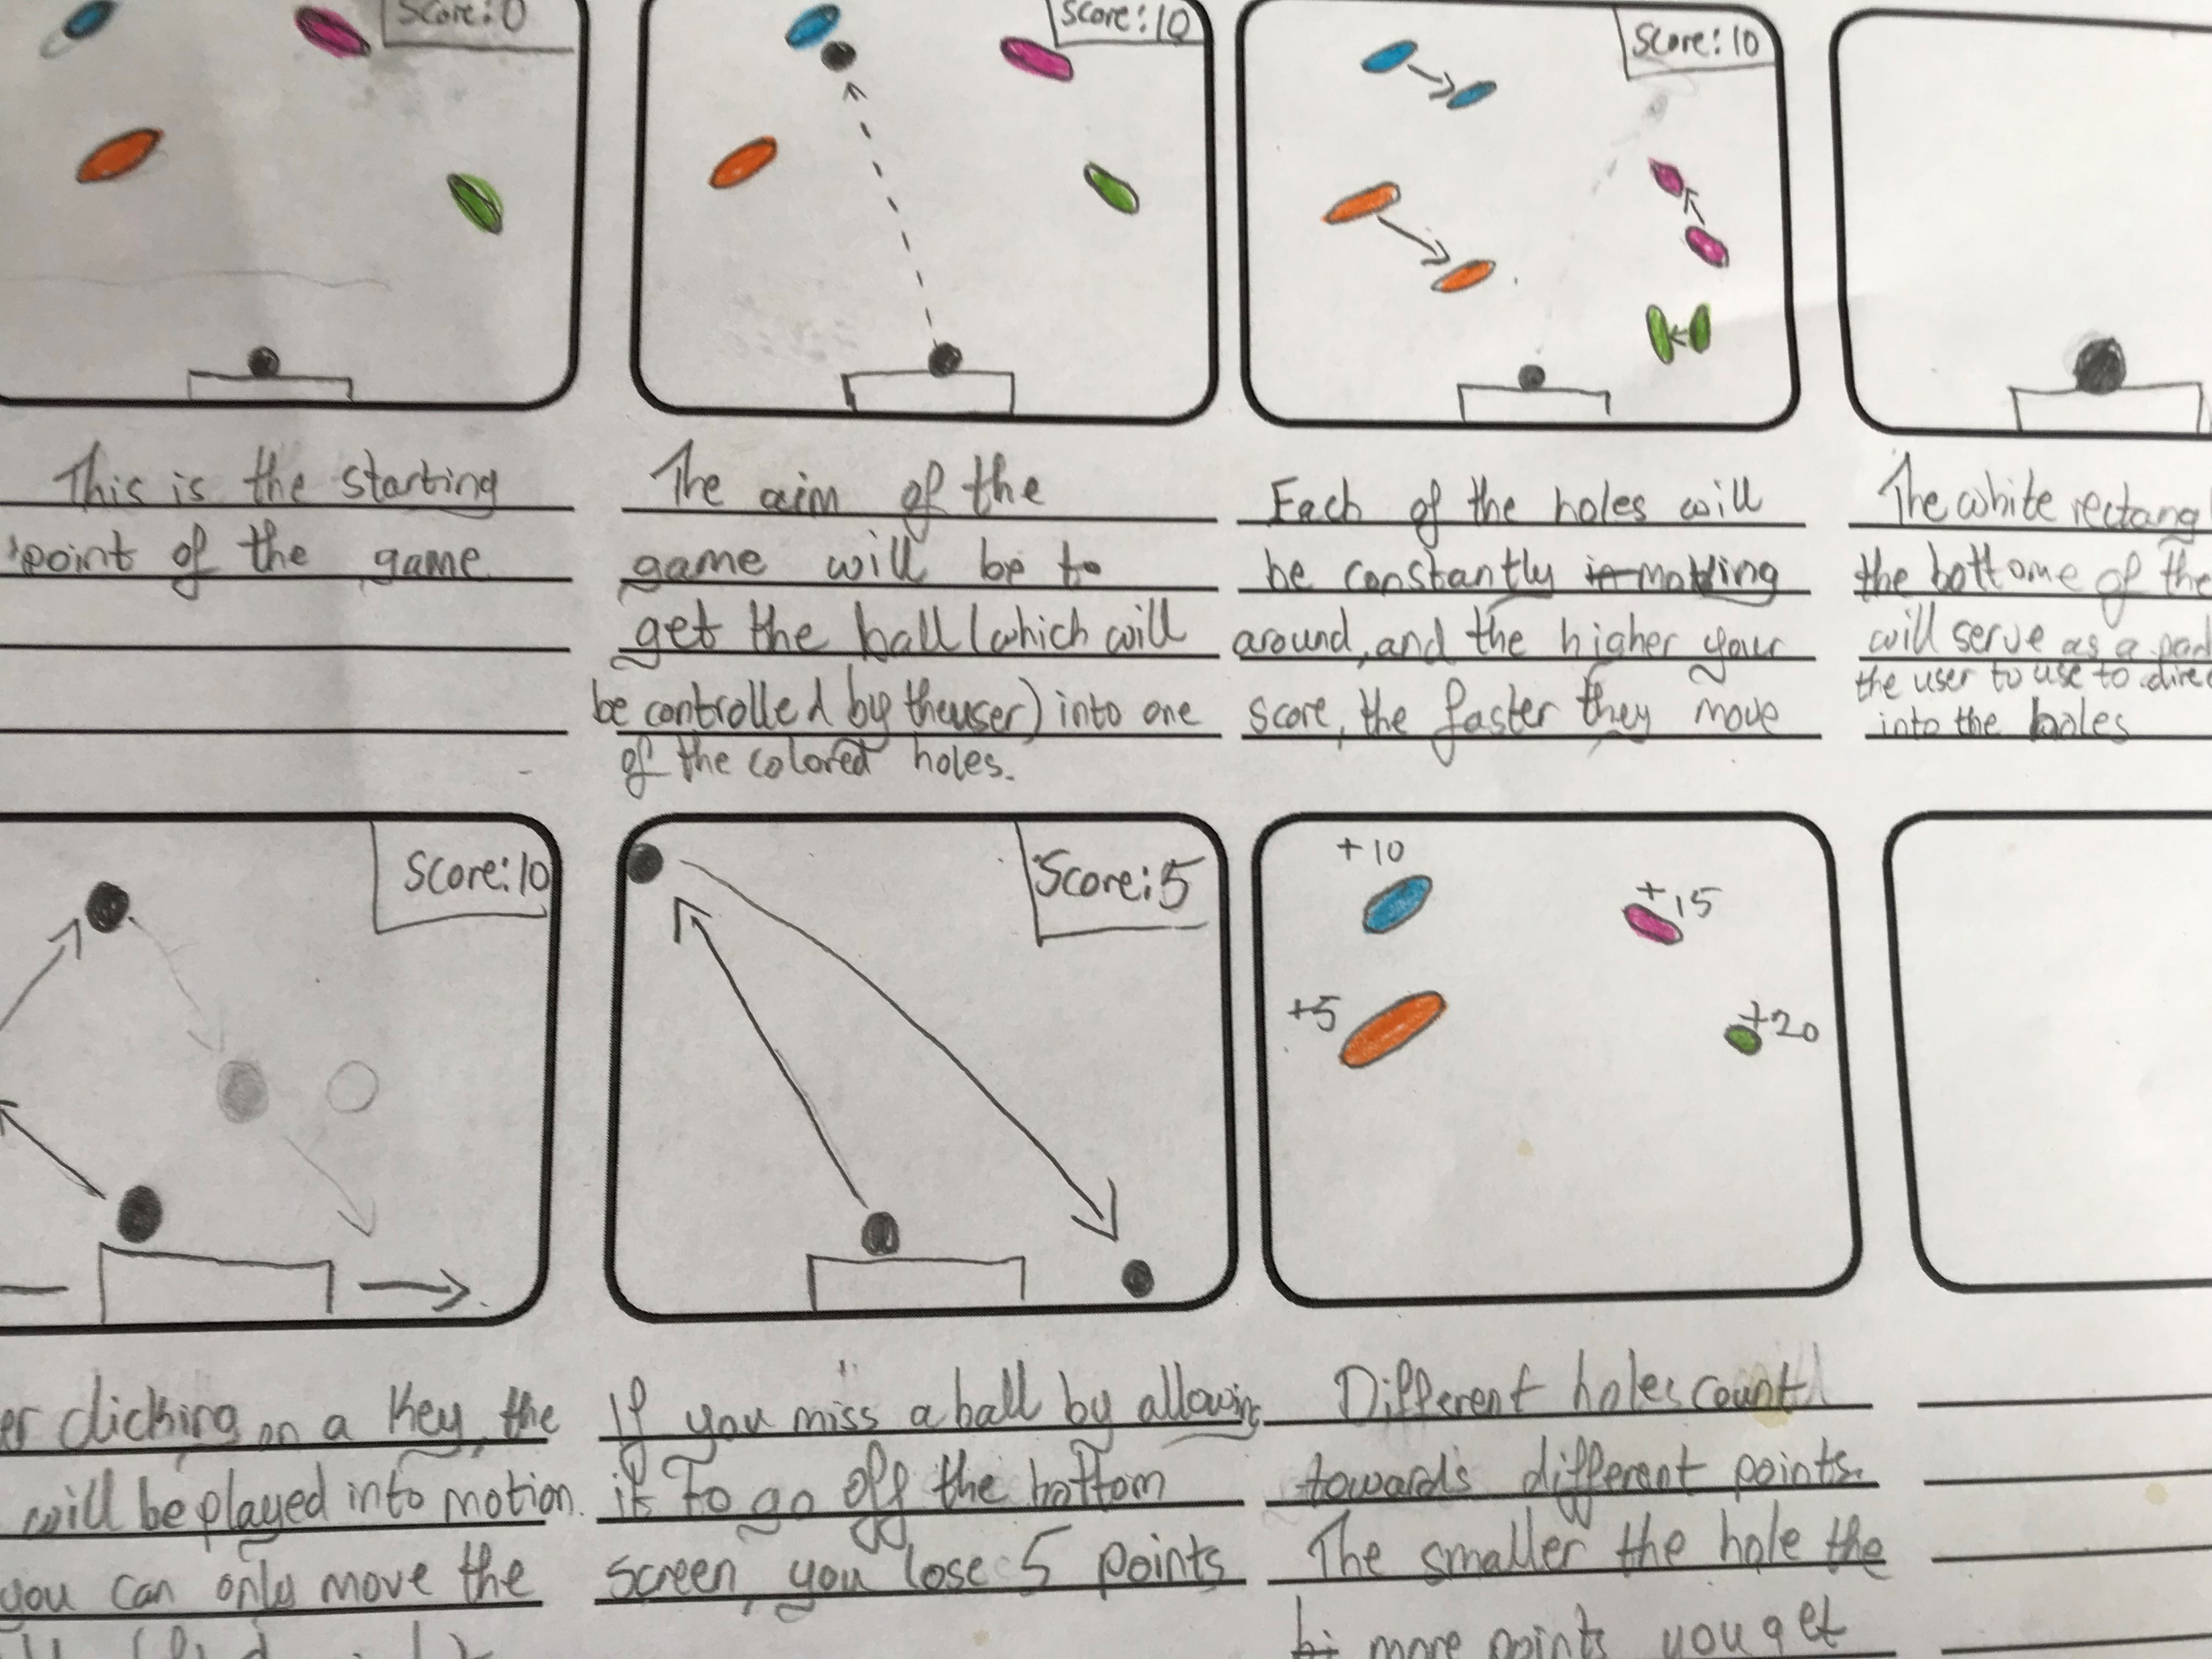 Score: 0
Score: 10
Score: 10
This is the starting
point of the game
The aim of the
game will be to
get the ball (which will
be controlled by the user) into one
of the colored holes.
Each of the holes will
be constantly moving
around, and the higher your
score, the faster they move
The white rectang
the bottome of the
will serve as a pad
the user to use to direc
into the holes
Score: 10
Score: 5
+10
+15
+5
+20
er clicking on a key, the
will be played into motion.
you can only move the
If you miss a ball by allowing
it to go off the bottom
screen, you lose 5 points
Different holes count
towards different points.
The smaller the hole the
more points you get